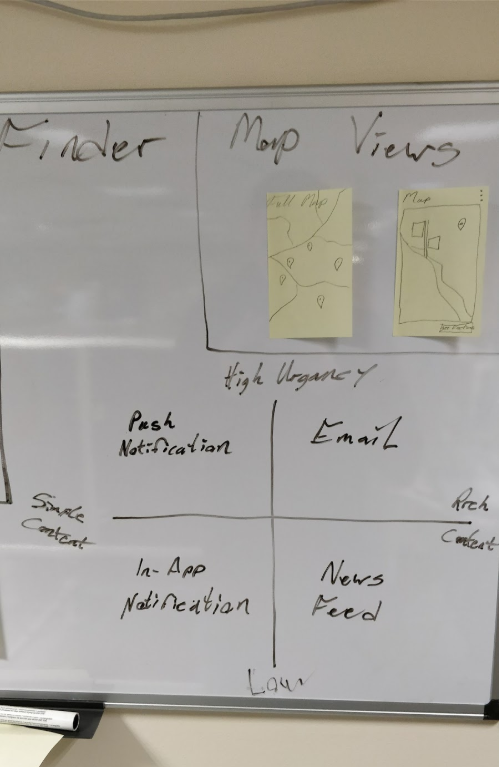 Finder
Map Views
Full Map
Map
High Urgancy
Push
Notification
Email
Simple
Content
Rich
Content
In-App
Notification
News
Feed
Low